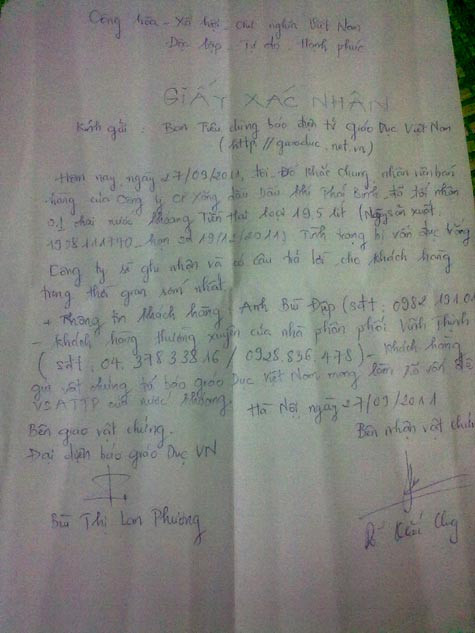 Cộng hòa - Xã hội - Chủ nghĩa Việt Nam
Độc lập - Tự do - Hạnh phúc
GIẤY XÁC NHẬN
Kính gửi : Ban Tiêu dùng báo điện tử giáo Dục Việt Nam
(http://giaoduc.net.vn)
Hôm nay, ngày 27/09/2011, tôi Đỗ Khắc Chung, nhân viên bán
hàng của Công ty CP Xăng dầu Dầu khí Thái Bình. đã tới nhận
01 chai nước khoáng Tiền Hải loại 19,5 lít (Ngày sản xuất
hạn sd 19/12/2011) Tình trạng bị vẩn đục váng
Công ty sẽ ghi nhận và có câu trả lời cho khách hàng
trong thời gian sớm nhất.
+ Thông tin khách hàng : Anh Bùi Điệp (sđt : 0982 191 0
- Khách hàng thường xuyên của nhà phân phối Vĩnh Thịnh
(sđt : 04. 37833816 / 0928.836.478) - Khách hàng
gửi vật chứng tố báo giáo Dục Việt Nam mong làm rõ vấn đề
VSATTP của nước khoáng.
Hà Nội, ngày 27/09/2011
Bên giao vật chứng. Bên nhận vật chứng
Đại diện báo giáo Dục VN
Bùi Thị Lan Phương
Đỗ Khắc Chung